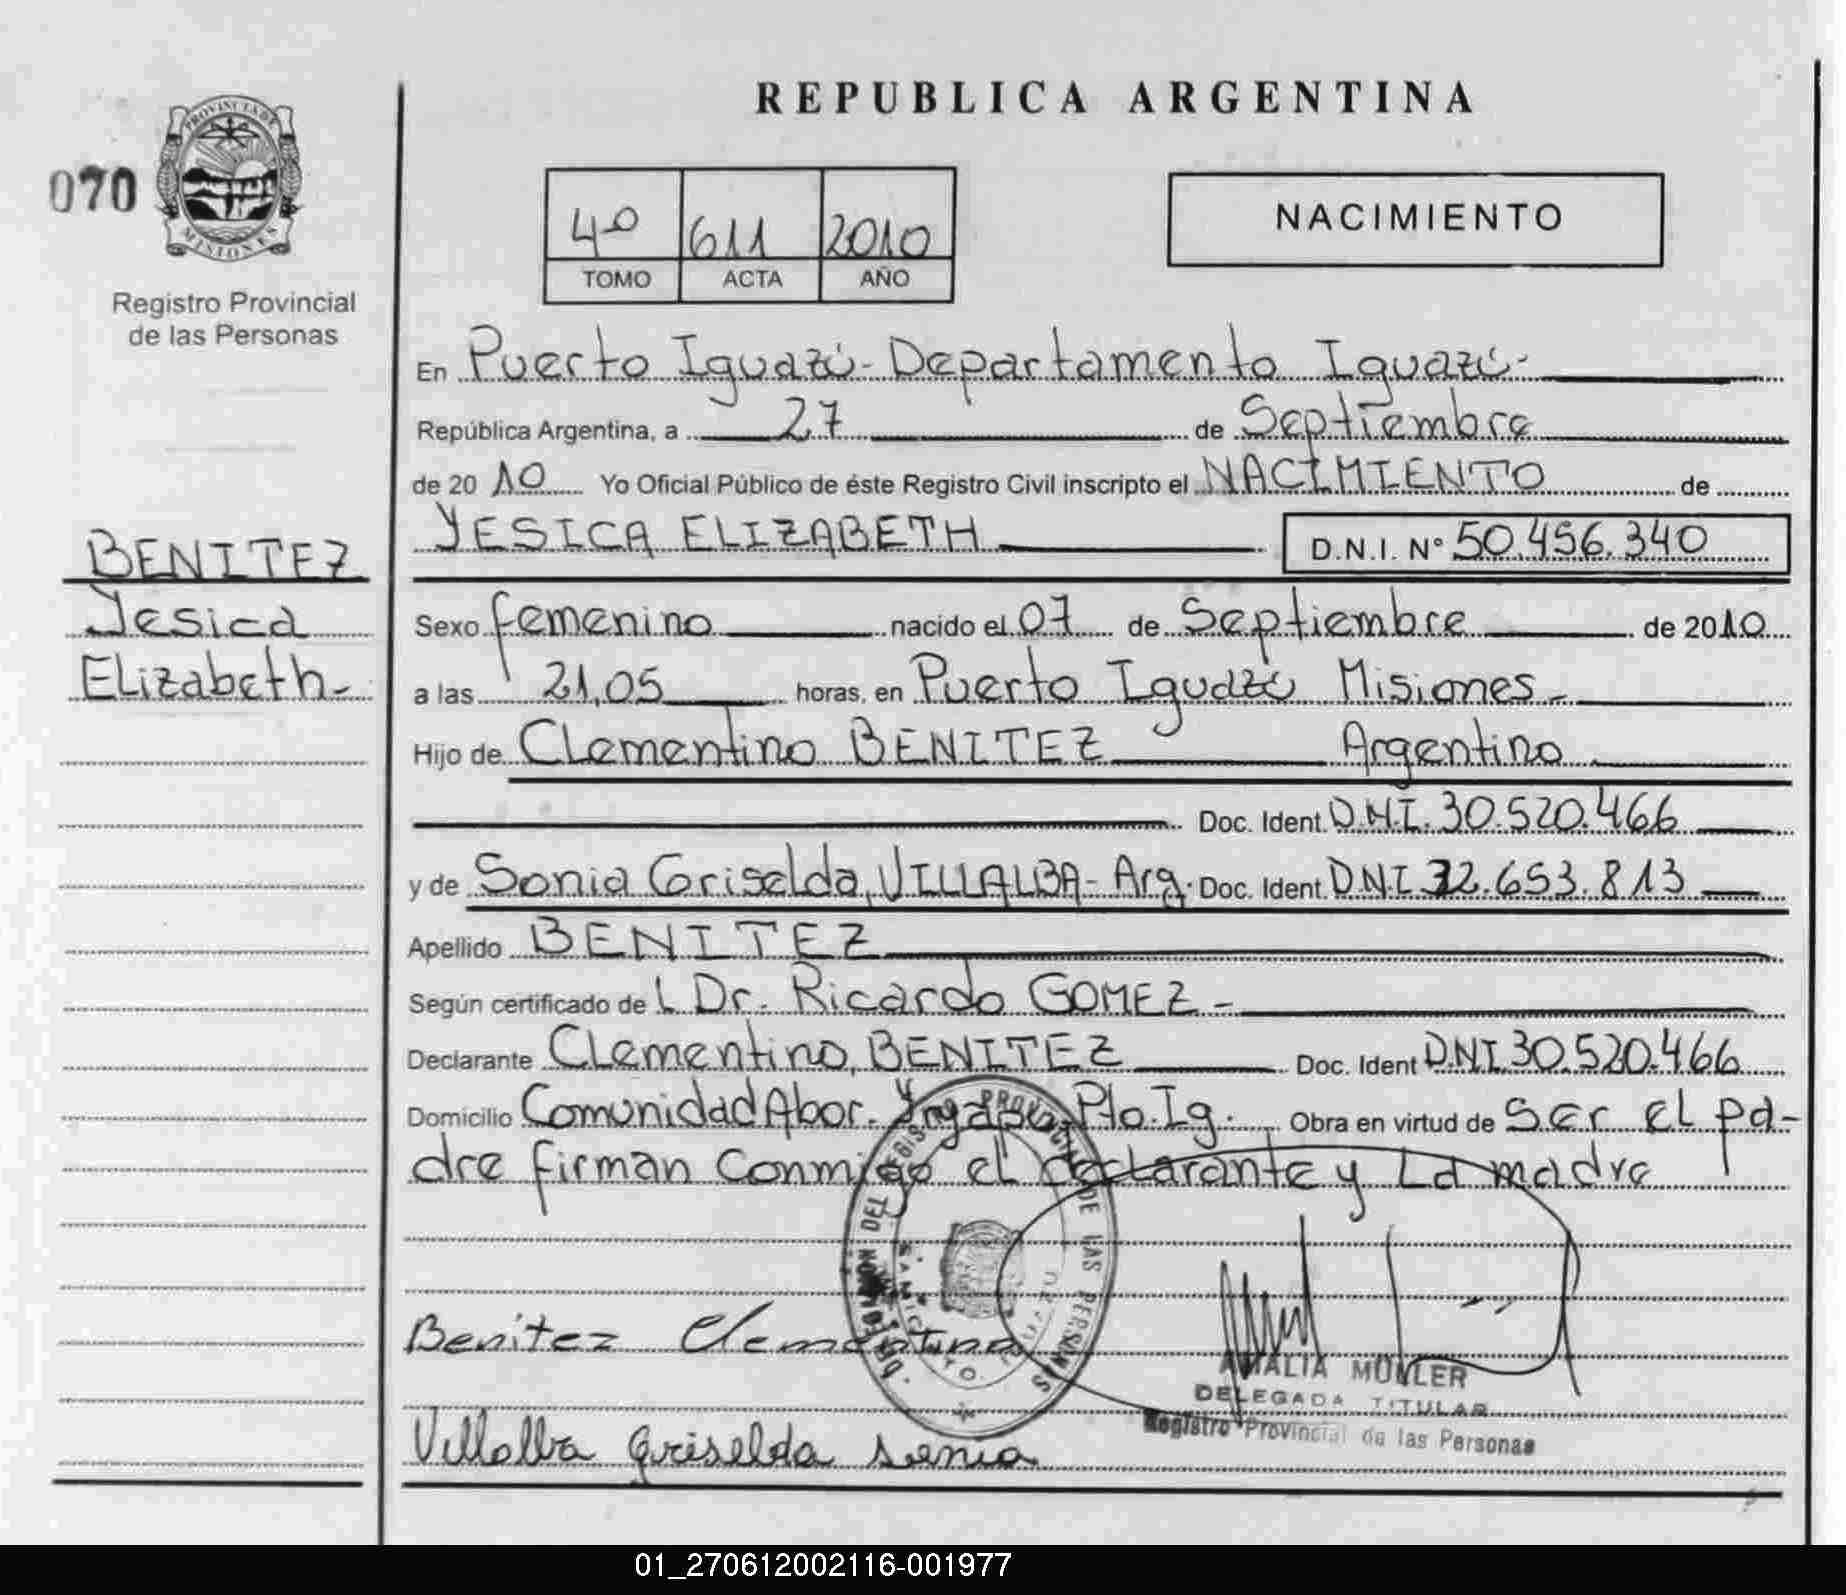 REPUBLICA ARGENTINA
070
PROVINCIA DE
MISIONES
Registro Provincial
de las Personas
4º 611 2010
TOMO ACTA AÑO
NACIMIENTO
En Puerto Iguazú - Departamento Iguazú -
República Argentina, a 27 de Septiembre
de 20 10 Yo Oficial Público de éste Registro Civil inscripto el NACIMIENTO de
YESICA ELIZABETH D.N.I. Nº 50.456.340
BENITEZ
Yesica
Elizabeth -
Sexo femenino nacido el 07 de Septiembre de 2010
a las 21,05 horas, en Puerto Iguazú Misiones -
Hijo de Clementino BENITEZ Argentino
Doc. Ident. D.N.I. 30.520.466
y de Sonia Griselda, VILLALBA - Arg. Doc. Ident. D.N.I 32.653.813
Apellido BENITEZ
Según certificado de L Dr. Ricardo GOMEZ -
Declarante Clementino, BENITEZ Doc. Ident D.N.I 30.520.466
Domicilio Comunidad Abor. Pto. Ig. Obra en virtud de ser el pa-
dre firman conmigo el declarante y La madre
PROVINCIAL DE LAS PERSONAS
Benitez Clementino
AMALIA MULLER
DELEGADA TITULAR
Registro Provincial de las Personas
Villalba Griselda Sonia
01_270612002116-001977